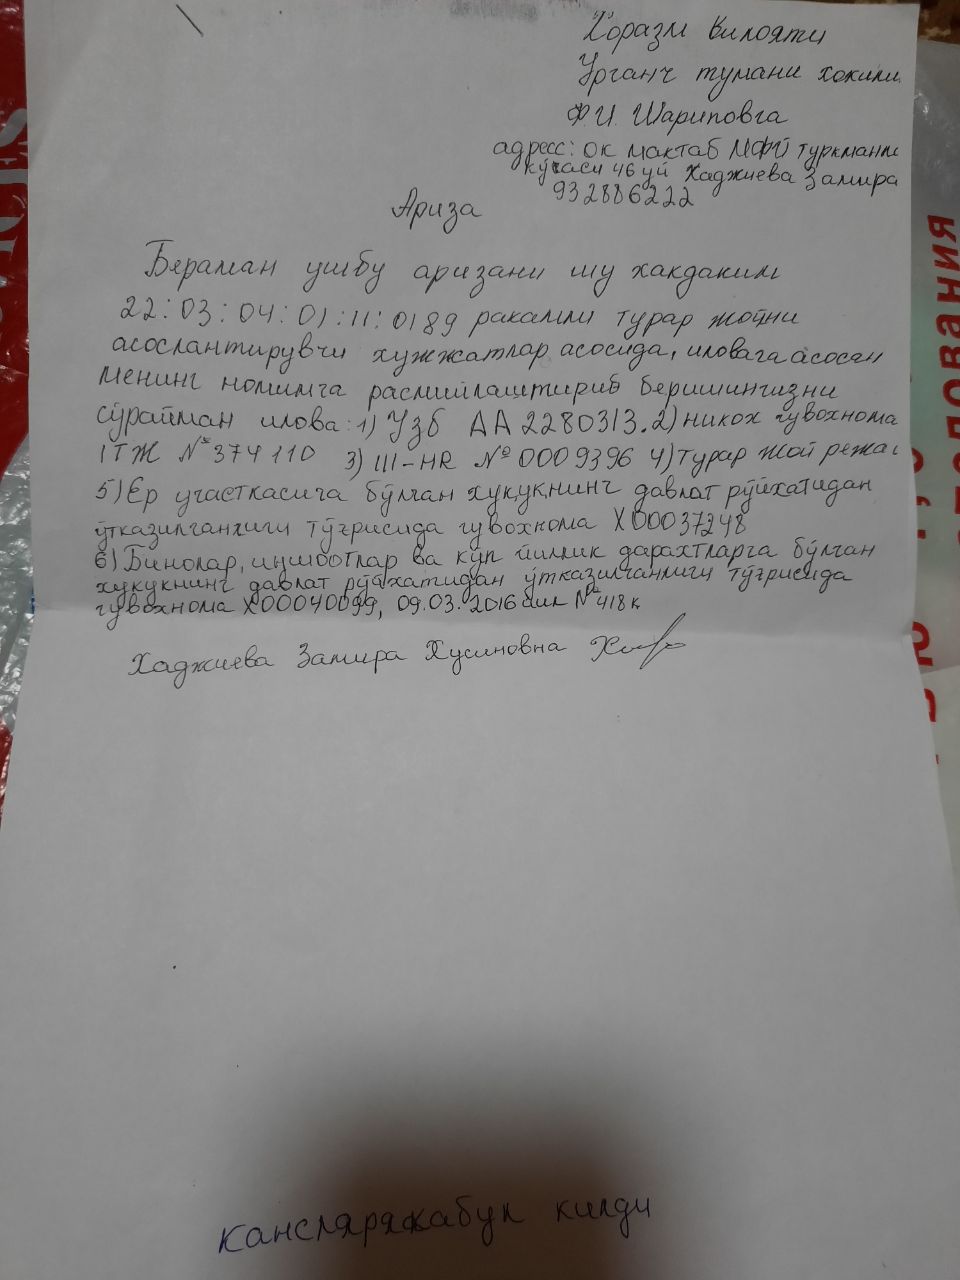 Хоразм вилояти
Урганч тумани хокими
Ф.И. Шариповга
адресс: ок мактаб МФЙ туркман
кўчаси 46 уй Хаджиева Замира
932886222
Ариза
Бераман ушбу аризани шу хакдаким
22:03:04:01:11:0189 ракамли турар жойни
асослантирувчи хужжатлар асосида, иловага асосан
менинг номимга расмийлаштириб беришингизни
сўрайман илова: 1) Узб АА 2280313. 2) никох гувохнома
1 ТЖ № 374110 3) III-HR № 0009396 4) турар жой режаси
5) Ер участкасига бўлган хуқуқнинг давлат рўйхатидан
ўтказилганлиги тўғрисида гувохнома Х00037248
6) Бинолар, иншоотлар ва куп йиллик дарахтларга бўлган
хукукнинг давлат рўйхатидан ўтказилганлиги тўғрисида
гувохнома Х00040099, 09.03.2016 йил № 418 к
Хаджиева Замира Хусиновна
КАНСЛЯРЯ
кансляря кабул килди